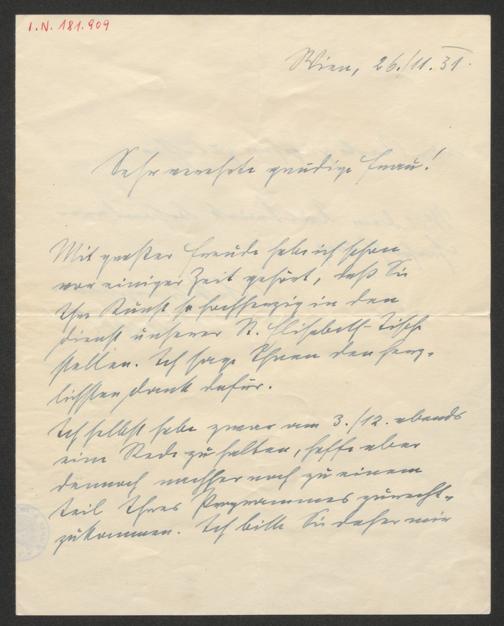 I.N. 181.909
Wien, 26./11.31.
Sehr verehrte gnädige Frau!
Mit großer Freude habe ich schon
vor einiger Zeit gehört, daß Sie
Ihre Kunst so hochherzig in den
Dienst unserer St. Elisabeth-Tische
stellen. Ich sage Ihnen den herz-
lichsten Dank dafür.
Ich selbst habe zwar am 3./12. abends
eine Rede zu halten, hoffe aber
dennoch nachher noch zu einem
Teil Ihres Programmes zurecht-
zukommen. Ich bitte Sie daher mir